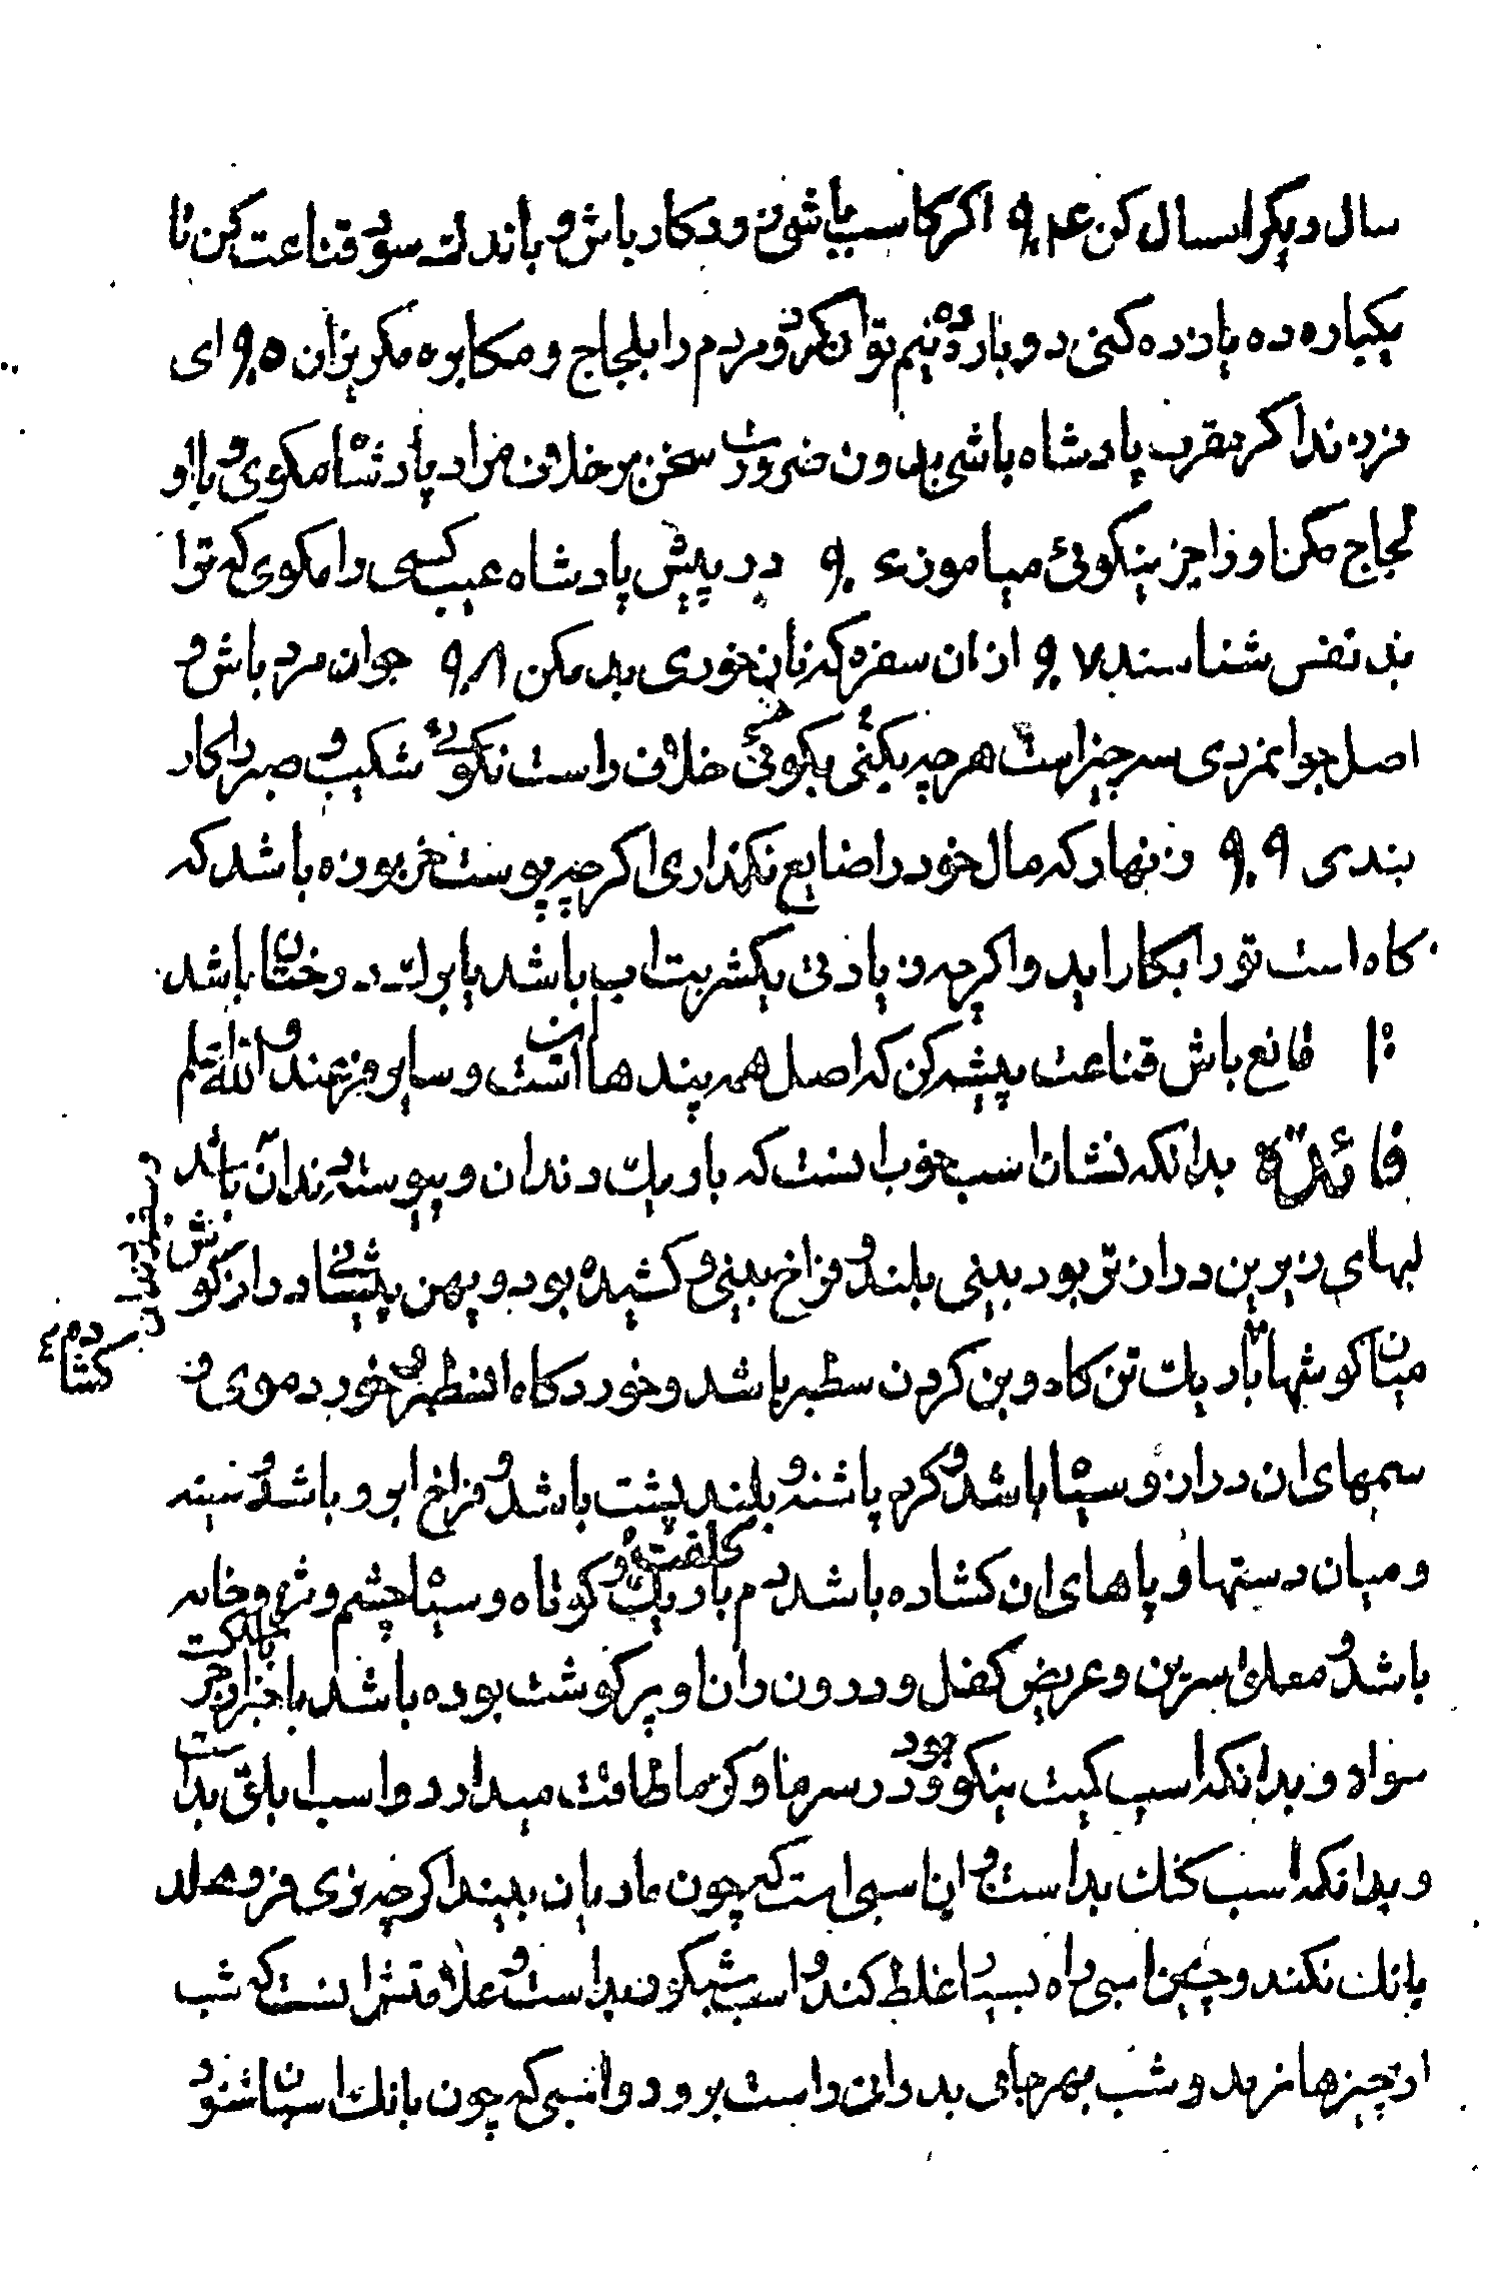 سال دیکر اسال کن ۹۰۴ اکر کاسب باشی زودکار باش و باندك سود قناعت کن تا
یکباره ده یازده کنی دو بار ده نیم توان کرد و مردم را بلجاج و مکابره مکریزان ۹۰۵ ای
فرزند اکر مقرب پادشاه باشی بدون ضرورت سخن بر خلاف مراد پادشاه مکوی و با او
لجاج مکن او را جز نیکوئی میاموز ۹۰۶ در پیش پادشاه عیب کسی را مکوی که ترا
بد نفس شناسند ۹۰۷ از ان سفره که نان خوری بد مکن ۹۰۸ جوان مرد باش و
اصل جوانمردی سه چیز است هر چه بکنی بکوئی خلاف راست نکوئی شکیب و صبر را کار
بندی ۹۰۹ زنهار که مال خود را ضایع نکذاری اکر چه پوست خربوزه باشد که
کاه است تو را بکار اید و اکر چه زیادتی یکشربت اب باشد یا برك درختان باشد
قانع باش قناعت پیشه کن که اصل همه پندها انست و سایر فرعند و الله اعلم
فائدة بدانکه نشان اسب خوب انست که باریك دندان و پیوسته دندان باشد
لبهای زیرین دراز تر بود بینی بلند و فراخ بینی و کشیده بود و پهن پیشانی دراز کوش
میان کوشها باریك تن کاه و بن کردن سطبر باشد و خورد کاه سطبر خورد موی و
سمهای ان دراز و سیاه باشد و کرم پاشنه و بلند پشت باشد و فراخ ابرو باشد و سینه
و میان دستها و پاهای ان کشاده باشد دم باریك و کوتاه و سیاه چشم و خایه
باشد و سرین و عریض کفل و درون ران او پر کوشت بوده باشد با
سواره و بدانکه اسب کمیت نیکو بود در سرما و کرما طاقت میدارد و اسب ابلق بد است
و بدانکه اسب خنك بد است و ان اسبی است که چون مادیان بیند اکر چه نری فرو هلد
بانك نکند و چنین اسبی راه بسیار غلط کند و اسب شبکون بد است و علامتش انست که شب
از چیزها نرمد و شب بهر جای بد رانی راست برود و اسبی که چون بانك اسبان شنود